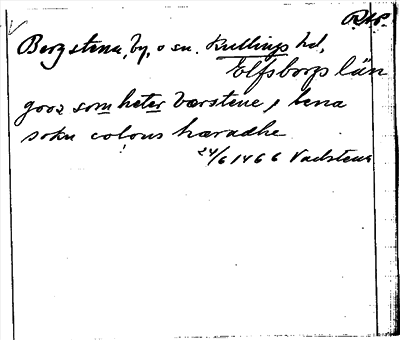 RAP.
Bergstena, by, o sn. Kullings hd,
Elfsborgs län
gooz som heter Værstene j bena
sokn colons hæradhe
24/6 1466 Vadstena